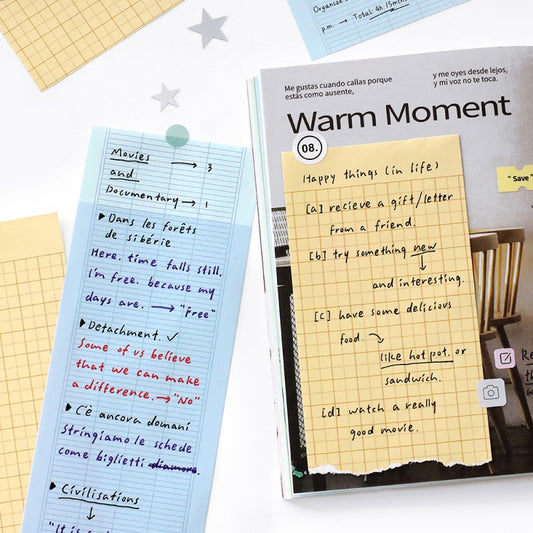 Organize
p.m. → Total 4h 15min.
Me gustas cuando callas porque
estás como ausente,
y me oyes desde lejos,
y mi voz no te toca.
Warm Moment
08.
"Save"
Happy things (in life)
[a] recieve a gift/letter
from a friend.
[b] try something new
↓
and interesting.
[c] have some delicious
food. →
like hot pot. or
sandwich.
[d] watch a really
good movie.
Movies → 3
and
Documentary → 1
▶ Dans les forêts
de sibérie
Here. time falls still.
I'm free. because my
days are. → "Free"
▶ Detachment. ✓
Some of us believe
that we can make
a difference. → "No"
▶ C'è ancora domani
Stringiamo le schede
come biglietti diamore.
▶ Civilisations
↓